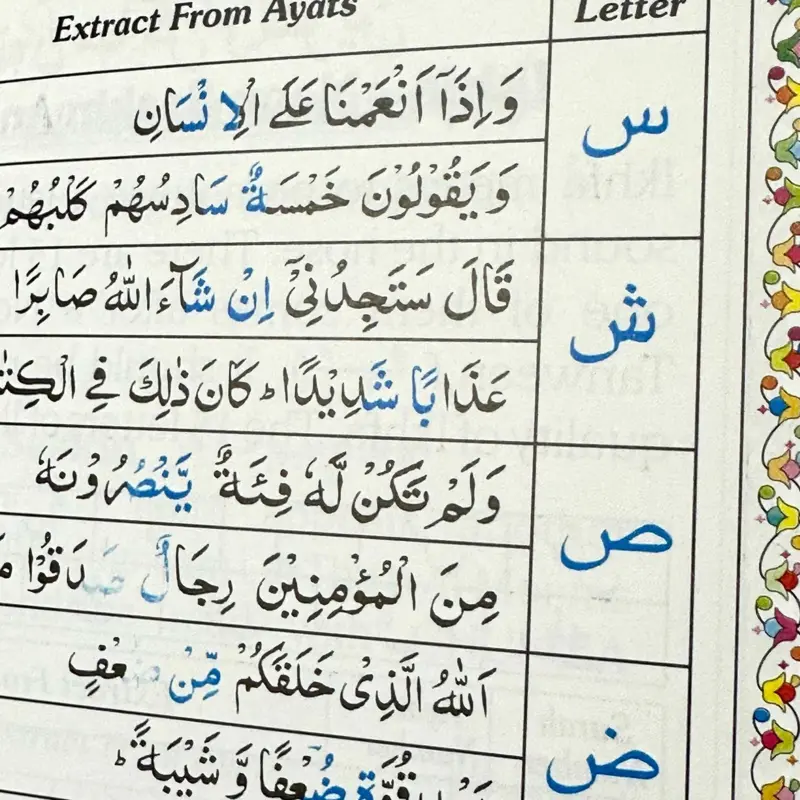 Extract From Ayats
Letter
س
وَ اِذَاۤ اَنْعَمْنَا عَلَے الْاِنْسَانِ
وَ يَقُوْلُوْنَ خَمْسَةٌ سَادِسُهُمْ كَلْبُهُمْ
ش
قَالَ سَتَجِدُنِيْۤ اِنْ شَآءَ اللّٰهُ صَابِرًا
عَذَابًا شَدِيْدًا ؕ كَانَ ذٰلِكَ فِے
ص
وَلَمْ تَكُنْ لَّهٗ فِئَةٌ يَّنْصُرُوْنَهٗ
مِنَ الْمُؤْمِنِيْنَ رِجَالٌ صَدَقُوْا
ض
اَللّٰهُ الَّذِيْ خَلَقَكُمْ مِّنْ ضُعْفٍ
قُوَّةٍ ضُعْفًا وَّ شَيْبَةً ؕ